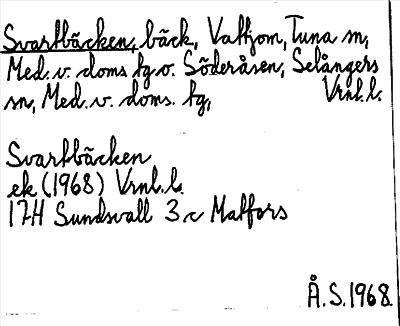 Svartbäcken, bäck, Vattjom, Tuna sn,
Med. v. doms tg o. Söderåsen, Selångers
sn, Med. v. doms. tg, Vrnl. l.
Svartbäcken
ek (1968) Vrnl. l.
17H Sundsvall 3 c Matfors
Å. S. 1968.